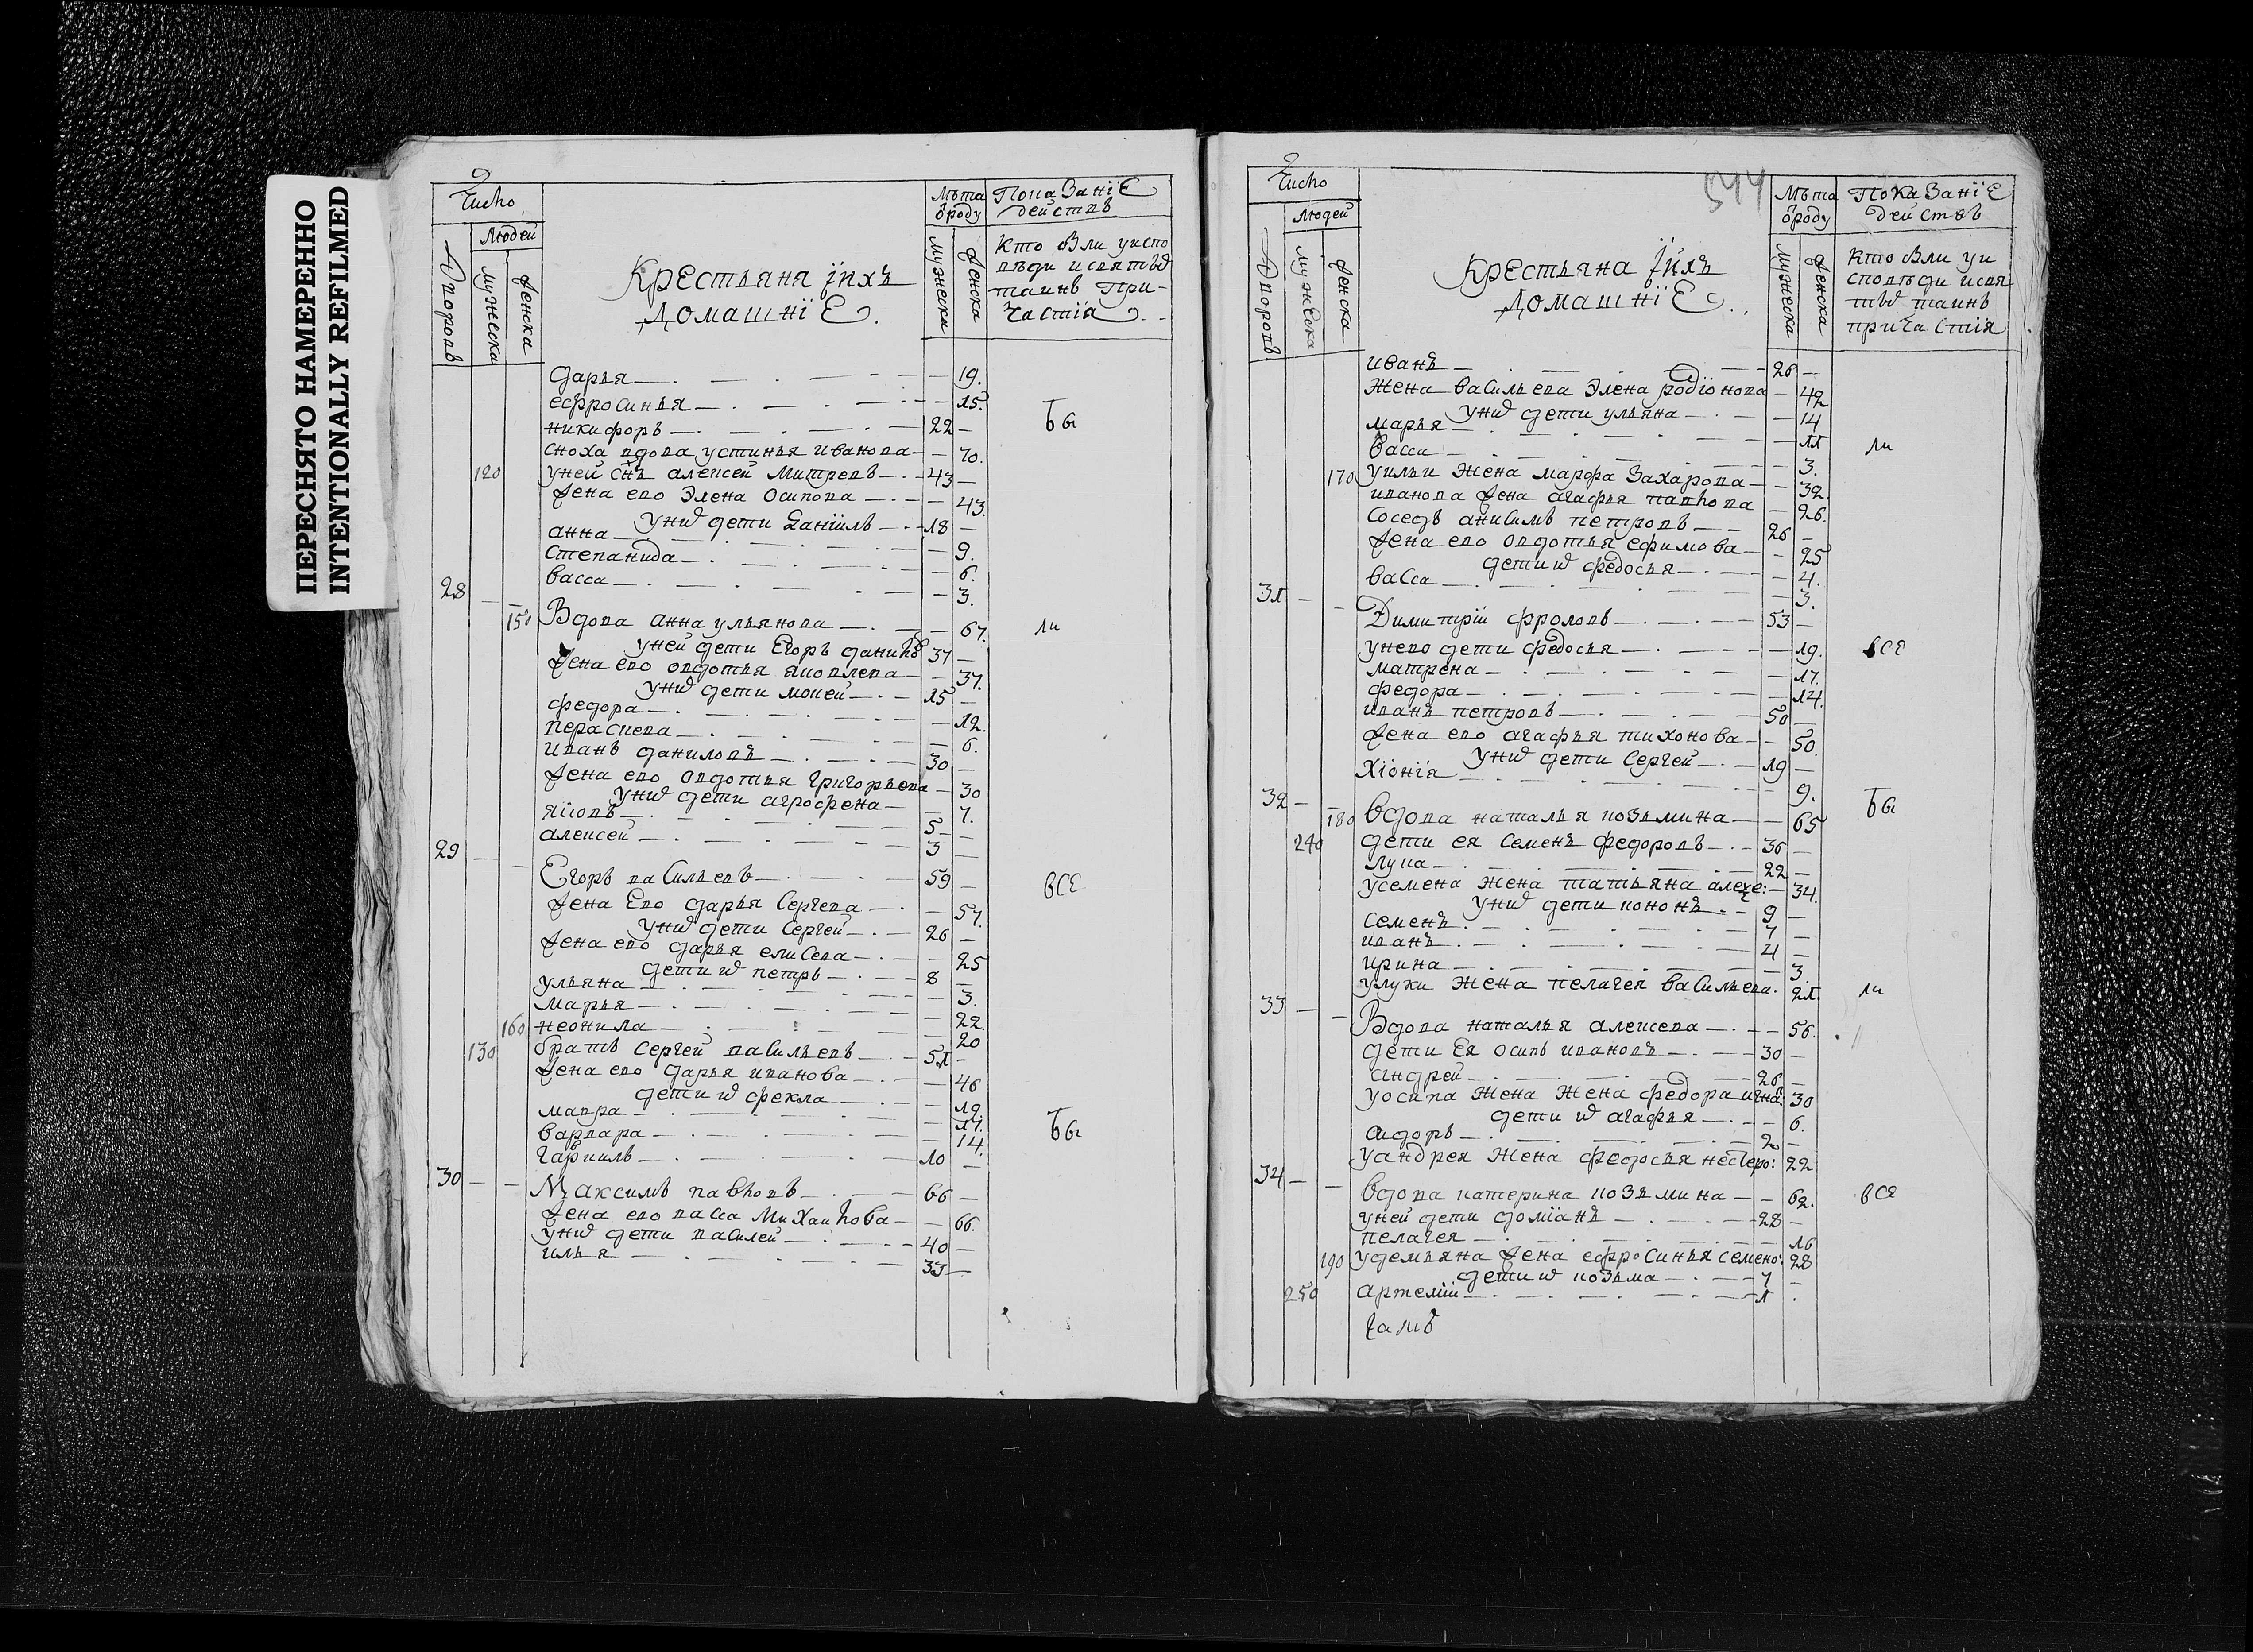 ПЕРЕСНЯТО НАМЕРЕННО
INTENTIONALLY REFILMED
Число
Людей
Дворовъ
мужеска
женска
Крестьяня їихъ
домашнїЕ.
Лѣта
ѿроду
мужеска
женска
ПоказанїЕ
действъ
Кто были уиспо
вѣди исвятыѿ
таинъ При-
частїя
дарья 19.
ефросинья 15.
никифоръ 22
сноха вдова устинья иванова 70.
120 уней снъ алексей Митревъ 43
жена ево Элена осипова 43.
униѿ дети Данїилъ 18
анна 9.
степанида 6.
васса 3.
28
150 Вдова анна ульянова 67.
уней дети Егоръ данилъ 37
жена ево овдотья яковлева 37.
униѿ дети мокей 15
федора 12.
параскева 6.
иванъ даниловъ 30
жена ево овдотья григорьева 30
униѿ дети агрофена 7.
яковъ 5
алексей 3
29
Егоръ васильевъ 59
жена Ево дарья Сергева 57.
униѿ дети Сергей 26
жена ево дарья елисева 25
детиѿ петръ 8
ульяна 3.
марья 22.
160 неонила 20
130 братъ Сергей васильевъ 51
жена ево дарья иванова 46
детиѿ фекла 19.
мавра 17.
варвара 14.
гаврилъ 10
30 Максимъ павловъ 66
жена ево васса Михайлова 66.
униѿ дети василей 40
илья 33
бы
ли
всЕ
бы
544
Число
Людей
Дворовъ
мужеска
женска
Крестьяна їихъ
домашнїЕ.
Лѣта
ѿроду
мужеска
женска
ПоКазанїЕ
действъ
Кто были уи
споvѣди исвя
тыѿ таинъ
причастїя
иванъ 26
жена васильева Элена родїонова 42
униѿ дети ульяна 14
марья 11
васса 3.
170 уильи жена марфа захарова 32.
иванова жена агафья павлова 26.
Соседъ анисимъ петровъ 26
жена ево овдотья ефимова 25
детиѿ федосья 4.
васса 3.
31
Димитрїй фроловъ 53
унево дети федосья 19.
матрена 17.
федора 14.
иванъ петровъ 50
жена ево агафья тихонова 50.
униѿ дети Сергей 19
Хїонїя 9.
32
180 вдова наталья козьмина 65
240 дети ея семенъ федоровъ 36
лука 22
усемена жена татьяна алеќе: 34.
униѿ дети кононъ 9
семенъ 7
иванъ 4
ирина 3.
улуки жена пелагея васильева. 21.
33
Вдова наталья алексева 56.
дети Ея осипъ ивановъ 30
андрей 26
уосипа жена жена федора игна: 30
детиѿ агафья 6.
сидоръ 2
уандрея жена федосья нестеро: 22
34
вдова катерина козьмина 62.
уней дети домїанъ 28
пелагея 16
190 удемьяна жена ефросинья семено: 28
детиѿ козьма 7
250 артемїй 1
галиѿ
ли
всЕ
бы
ли
всЕ